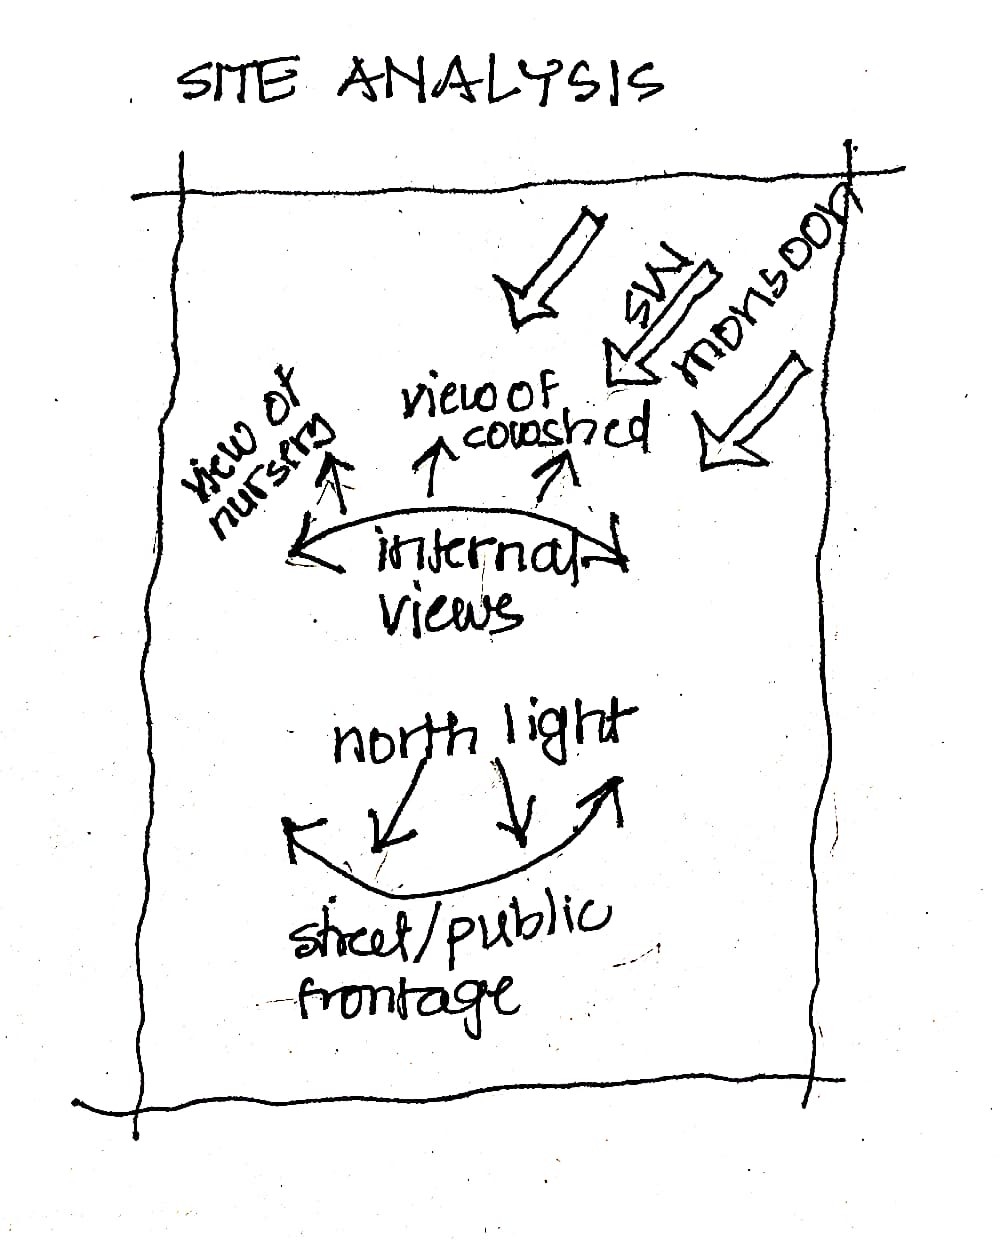 SITE ANALYSIS
SW
monsoon
view of
nursery
view of
cowshed
internal
views
north light
street/public
frontage